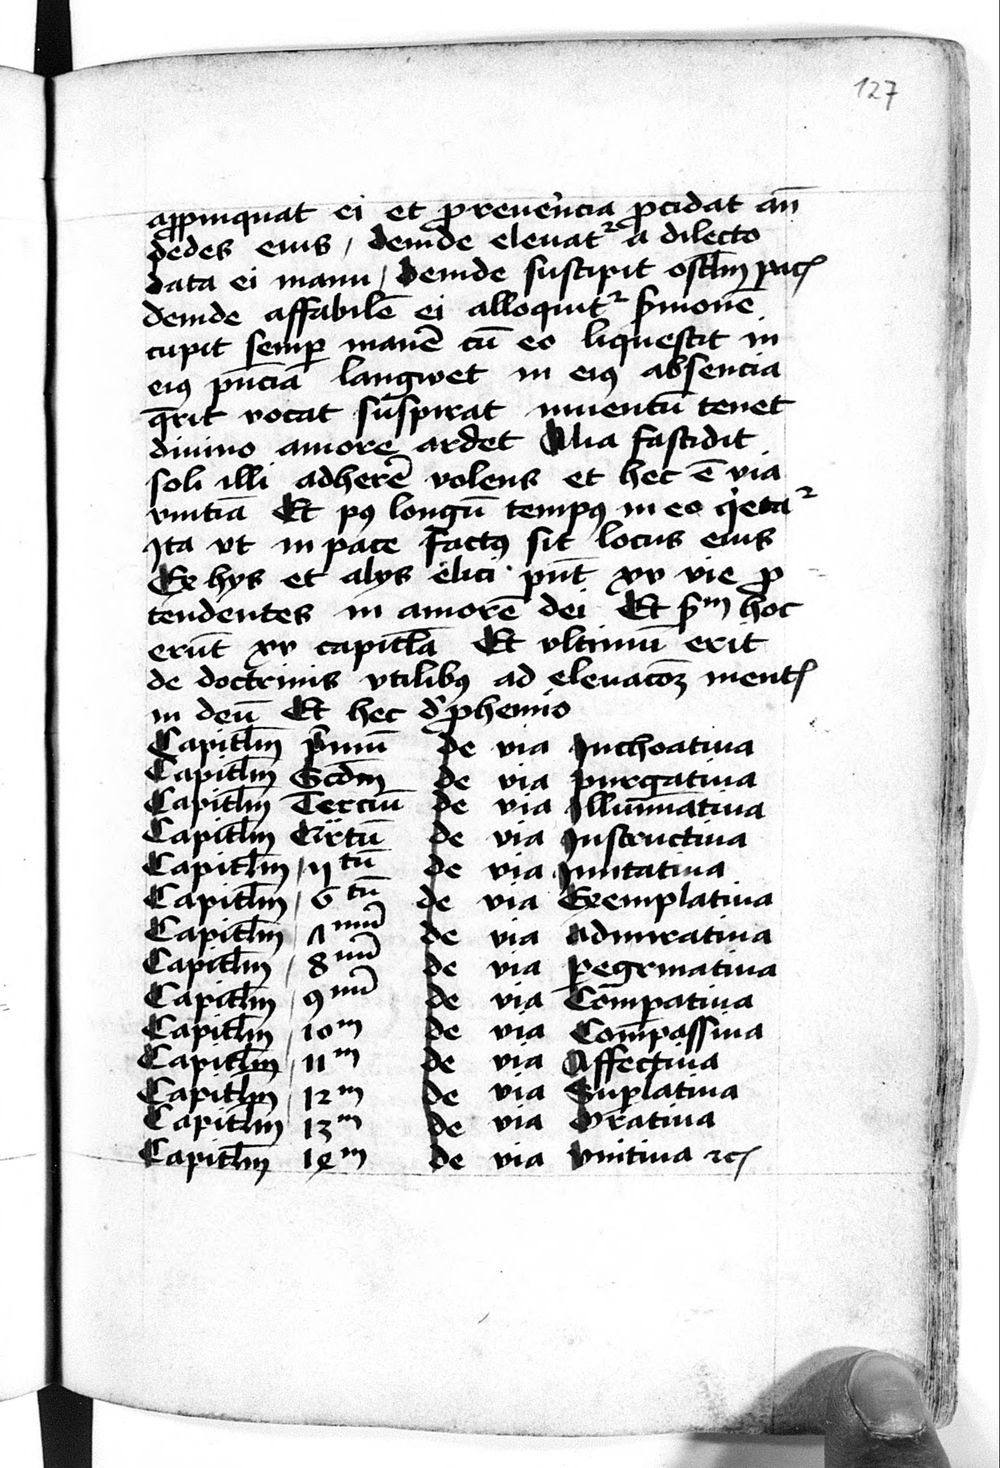 127
appinquat ei et p reuerencia pcidat an̄
pedes eius / deinde eleuat᷑ a dilecto
data ei manu / deinde suscipit osclm̄ pacꝭ
deinde affabilē ei alloquit᷑ s̄monē
cupit semp manē cū eo liquescit in
eiꝰ pn̄ciā langwet in eiꝰ absencia
q̄rit vocat suspirat inuentū tenet
diuino amore ardet Alia fastidit
soli illi adherē volens et hec ē via
vnitiā Et pꝰ longū tempꝰ in eo q̇eta᷑
Ita vt in pace factꝰ sit locus eius
Ex hys et alys elici pn̄t xv vie p
tendentes in amorē dei Et s̄m hoc
erūt xv capitl̄a Et vltimū erit
de doctrinis vtilibꝰ ad eleuacōꝫ mentꝭ
in deū Et hec d̄ phemio
Capitl̄m p̄mū de via Inchoatiua
Capitl̄m Scd̄m de via purgatiua
Capitl̄m Terciū de via Illūinatiua
Capitl̄m Q̈rtū de via Instructiua
Capitl̄m / 5tū de via Imitatiua
Capitl̄m / 6 tū de via Exemplatiua
Capitl̄m / 7mū de via Admiratiua
Capitl̄m / 8mū de via pegrinatiua
Capitl̄m / 9mū de via Compatiua
Capitl̄m / 10m de via Compassiua
Capitl̄m / 11m de via Affectiua
Capitl̄m / 12m de via Suplatiua
Capitl̄m / 13m de via Oratiua
Capitl̄m 14m de via vnitiua ⁊cꝭ